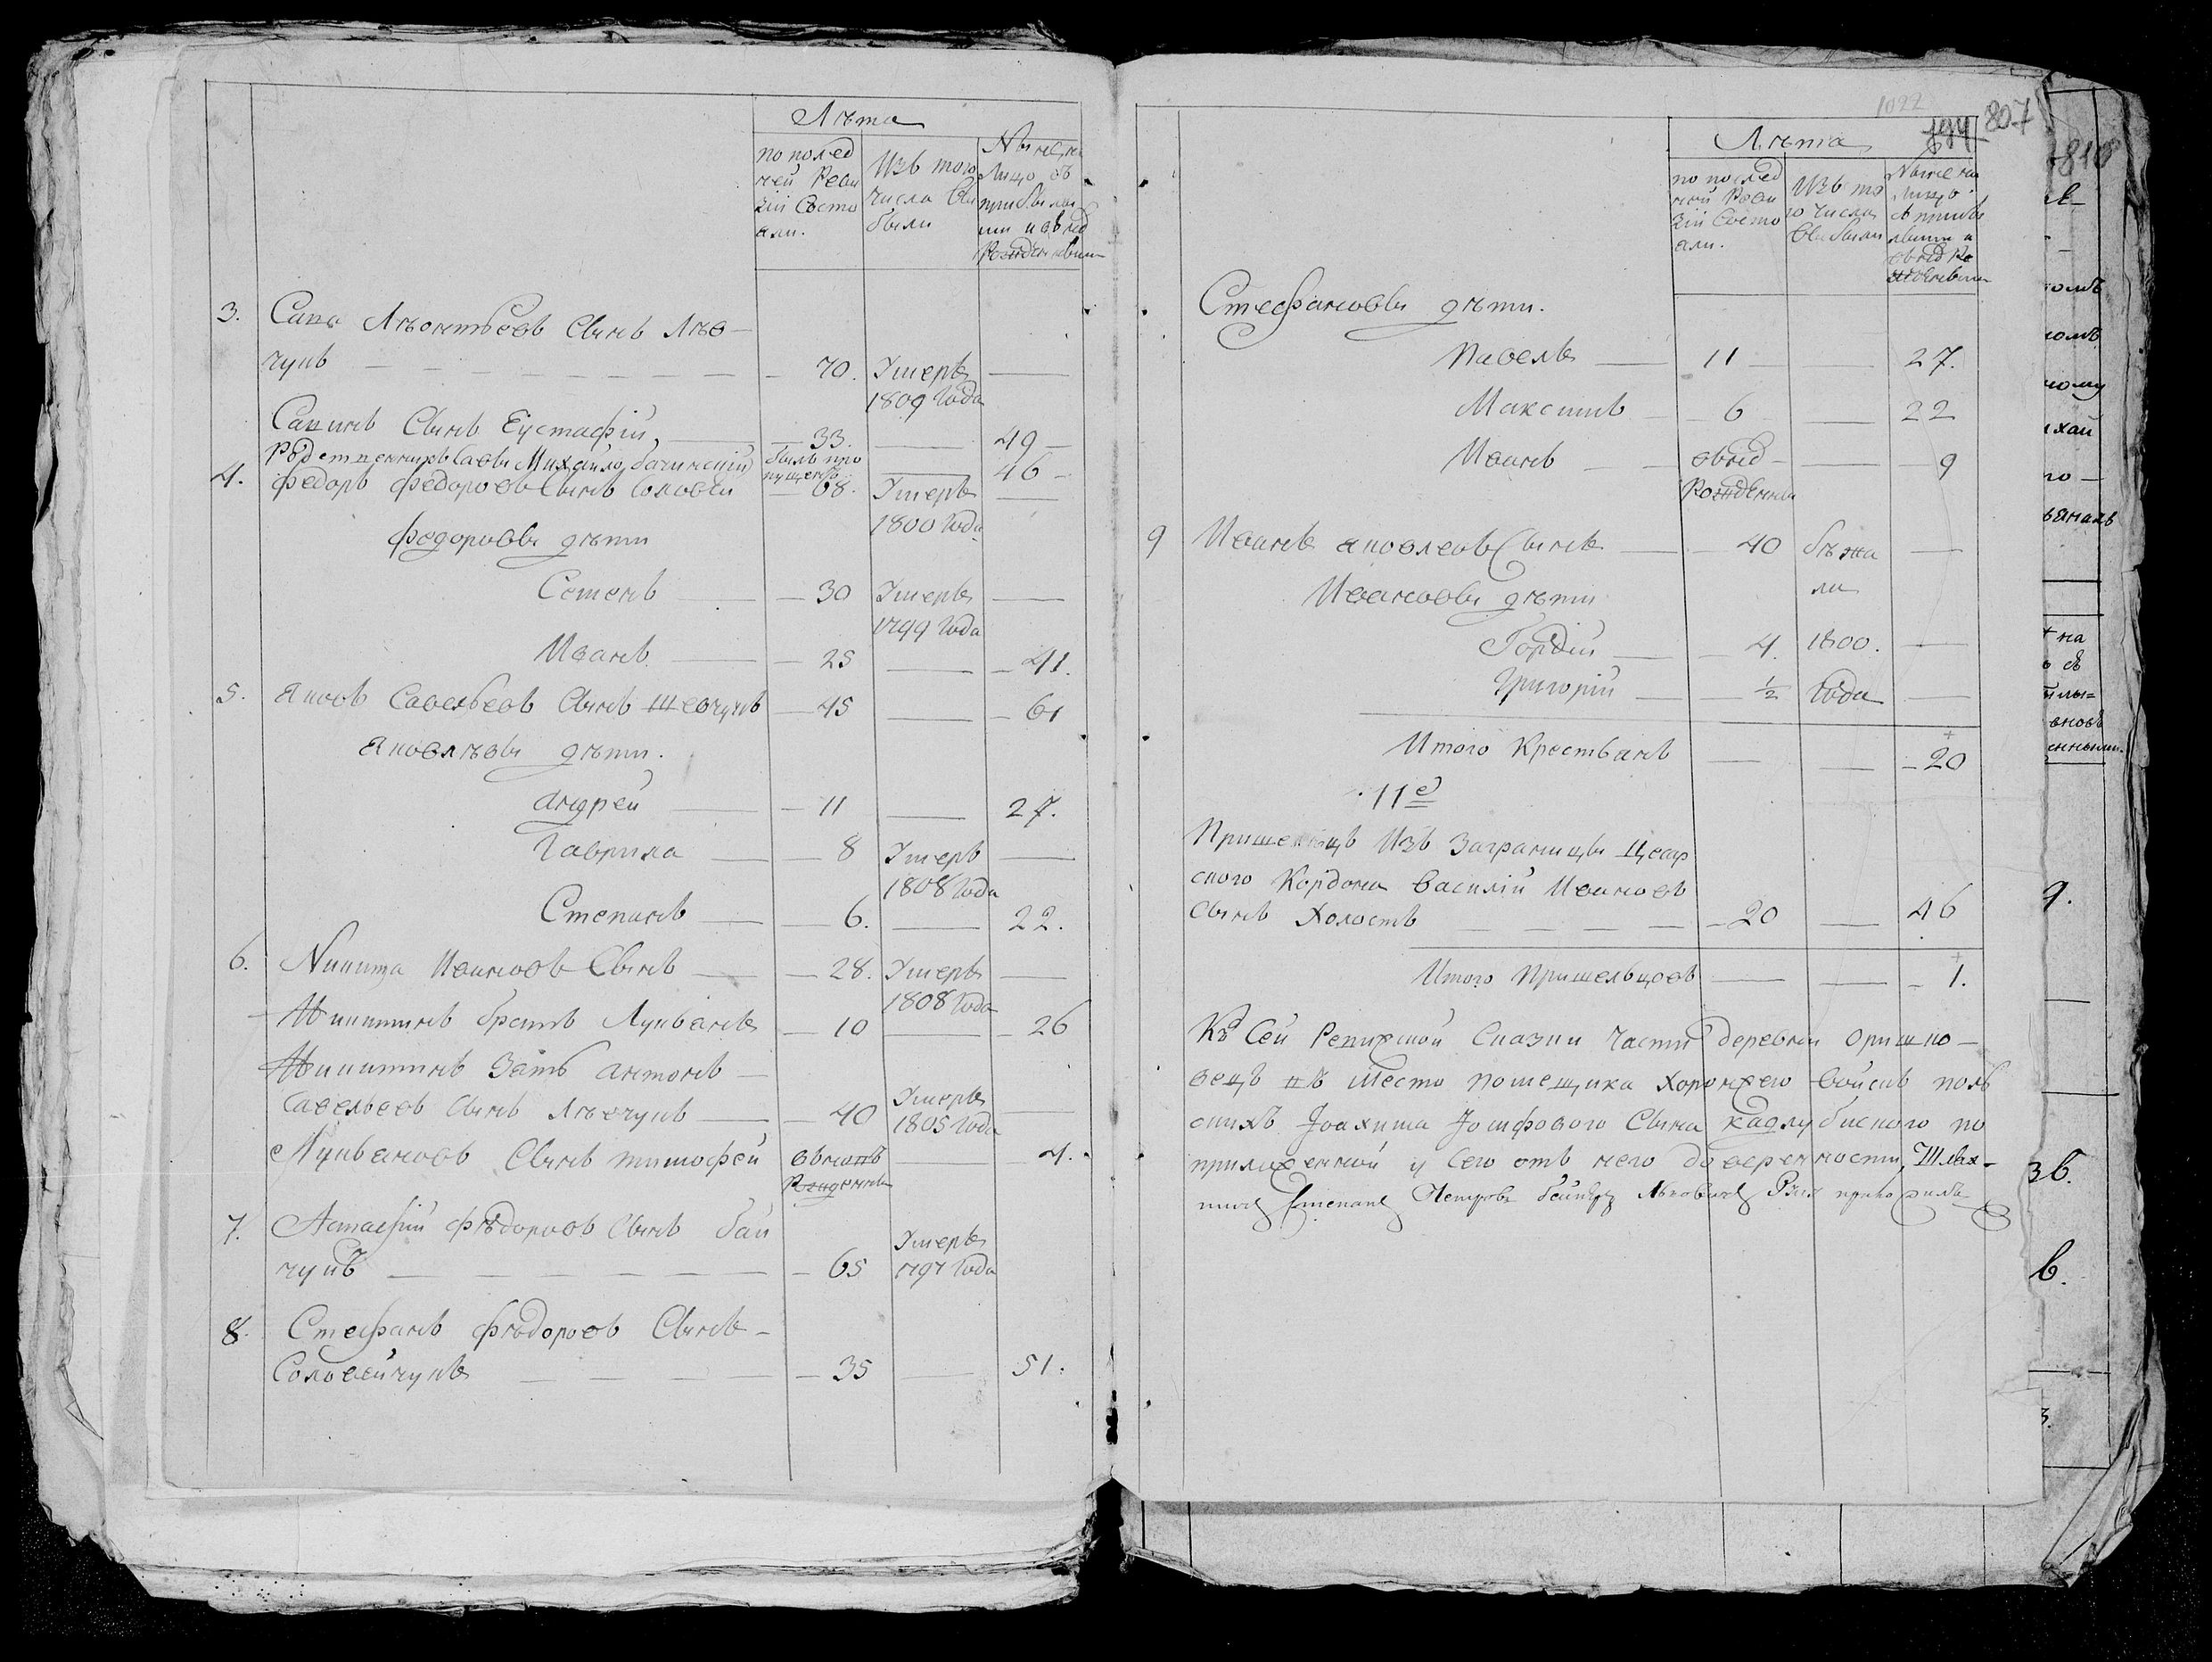 Лѣта
по послед
ней Реви
зіи Состо
яли.
Изъ того
числа Вы
были
Ныне на
Лицо съ
прибылы
ми и вновъ
Рожденными
3. Сава Леонтьевъ Сынъ Лев-
чукъ — 70. Умеръ —
1809 года
Савинъ Сынъ Еустафій — 33. — 49
Михайло былъ про
пущенъ — 46
4. федоръ федоровъ Сынъ — 68. Умеръ —
1800 года
федоровы дѣти
Семенъ — 30 Умеръ —
1799 года
Иванъ — 25 — 41.
5. Яковъ Савельевъ Сынъ Шевчукъ — 45 — 61
Яковлѣвы дѣти.
Андрей — 11 — 27.
Гаврила — 8 Умеръ —
1808 года
Степанъ — 6. — 22.
6. Никита Ивановъ Сынъ — 28. Умеръ —
1808 года
Никитинъ братъ Лукьянъ — 10 — 26
Никитинъ Зать антонъ —
Савельевъ Сынъ Левчукъ — 40 Умеръ
1805 года —
Лукьяновъ Сынъ тимофей вновъ — 4.
Рожденны
7. Астафій фѣдоровъ Сынъ бай
чукъ — 65 Умеръ
1797 года
8. Стефанъ фѣдоровъ Сынъ —
Соловейчукъ — 35 — 51.
1022
807
Лѣта
по послед
ней Реви
зіи Состо
яли.
Изъ то
го Числа
Выбыли
Ныне на
Лицо
с прибы
лыми и
вновъ Ро
жденными
Стефановы дѣти.
Павелъ — 11 — 27.
Максимъ — 6 — 22
Иванъ — вновъ — 9
Рожденны
9 Иванъ яковлевъ Сынъ — 40 бѣжа —
ли
Ивановы дѣти
Гордій — 4. 1800. —
Григорій — ½ года —
Итого Крестьянъ — — 20
11е
Пришелецъ Изъ Заграницы Цесар
ского Кордона Василій Ивановъ
Сынъ Холостъ — 20 — 46
Итого Пришельцовъ — — 1.
Къ Сей Ревижской Сказки Части деревни Оришко-
вецъ въ место помещика Хорунжего войскъ поль
скихъ Іоахима Іосифового Сына Кадлубиского по
приложенной у Сего отъ него доверенности, Шлях-
тичъ Степанъ Петровъ